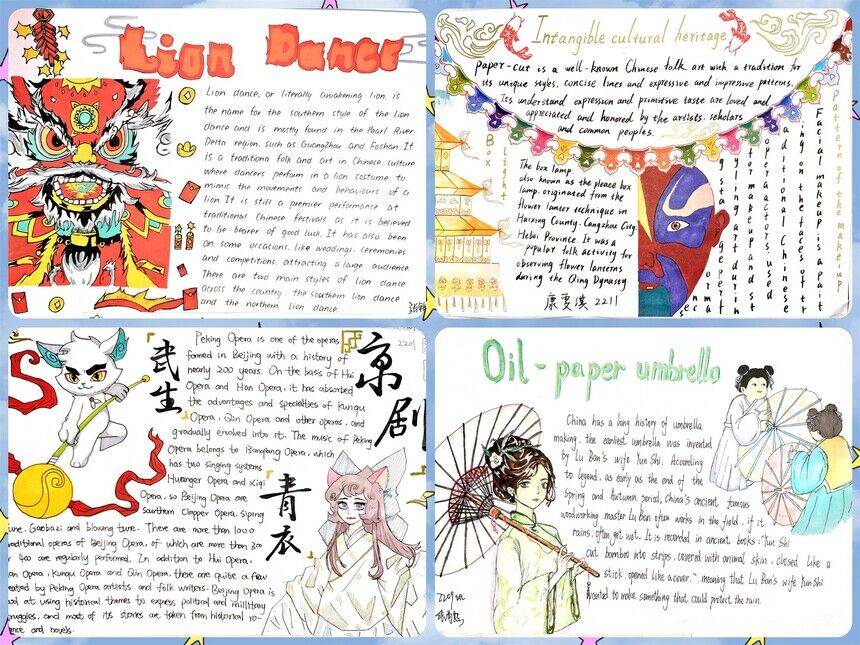 Lion Dance
Lion dance, or literally awakening lion, is
the name for the southern style of the lion
dance and is mostly found in the Pearl River
Delta region, such as Guangzhou and Foshan. It
is a traditiona folk and art in Chinese culture
where dancers perform in a lion costume to
mimic the movements and behaviours of a
lion. It is still a premier performance at
traditional Chinese festivals as it is believed
to be bearer of good luck. It has also been
on some occasions, like weddings, ceremonies
and competitions, attracting a large audience.
There are two main styles of lion dance
across the country, the southern lion dance
and the northern lion dance.
Intangible cultural heritage
paper-cut is a well-known Chinese folk art with a tradition for
its unique styles, concise lines and expressive and impressive patterns.
Its understand expression and primitive taste are loved and
appreciated and honored by the artists, scholars
and common peoples.
Box
Light
The box lamp,
also known as the pleace box
lamp, originated from the
flower lanter technique in
Haixing County, Cangzhou City,
Hebei Province. It was a
popular folk activity for
observing flower lanterns
during the Qing Dynasty
康雯淇 2211
Pattern of the makeup
Facial makeup is a pait
ing on the faces of tr
aditional Chinese
opera actors, used
for makeup and s
tyling art durin
g stage perf
ormance
武生
京剧
青衣
Peking Opera is one of the operas
formed in Beijing with a history of
nearly 200 years. On the basis of Hui
Opera and Han Opera, it has absorbed
the advantages and specialties of Kunqu
Opera, Qin Opera and other operas, and
gradually evolved into it. The music of Peking
Opera belongs to Bangfang Opera, which
has two singing systems
Huanger Opera and Xiqi
Opera, so Beijing Opera are
Sawthern Clapper Opera, Siping
tune, Gaobazi and blowing tune. There are more than 1000
traditional operas of Beijing Opera, of which are more than 300
400 are regularly performed. In addition to Hui Opera,
Han Opera, Kunqu Opera and Qin Opera, there are quite a few
created by Peking Opera artists and folk writers. Beijing Opera is
good at using historical themes to express political and military
struggles, and most of its stories are taken from historical ro-
mance and novels.
Oil-paper umbrella
China has a long history of umbrella
making, the earliest umbrella was invented
by Lu Ban's wife Yun Shi. According
to legend, as early as the end of the
Spring and Autumn period, China's ancient famous
woodworking master Lu Ban often works in the field, if it
rains, often get wet. It is recorded in ancient books: "Yun Shi
cut bamboo into strips, covered with animal skin, closed like a
stick, opened like a cover.", meaning that Lu Ban's wife Yun Shi
wanted to make something that could protect the rain.